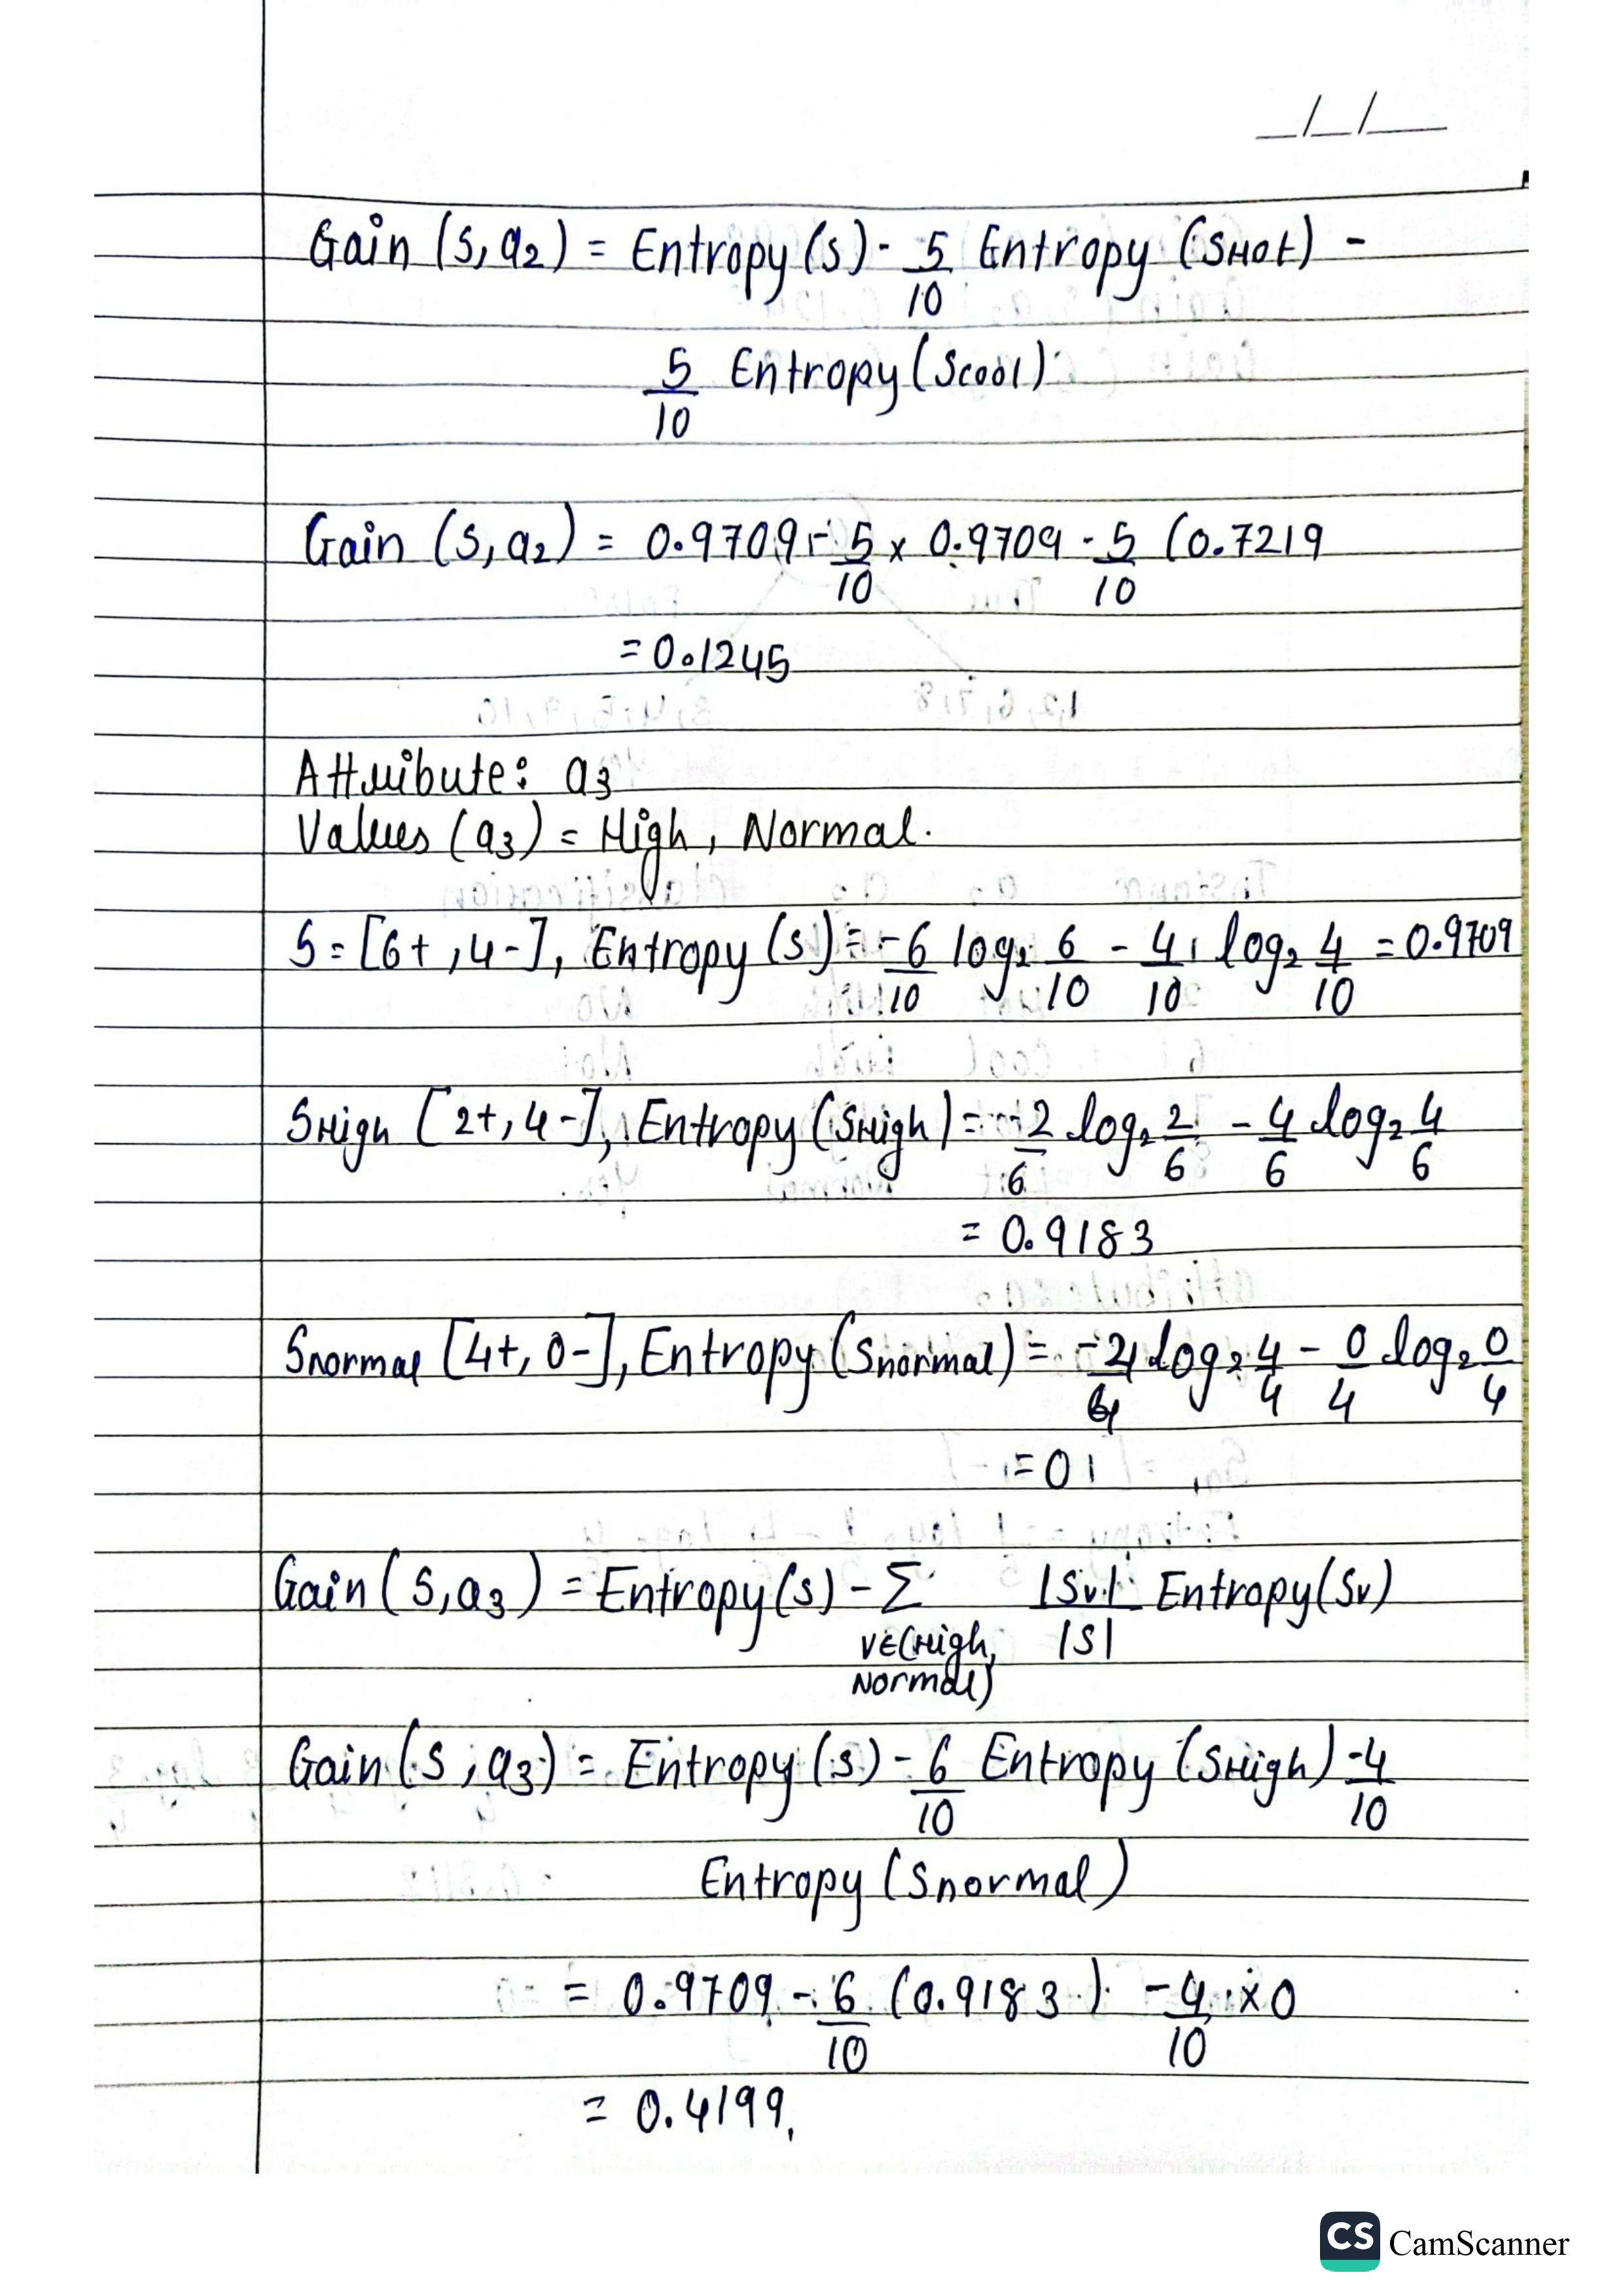 __/__/____
Gain (S, a2) = Entropy (S) - 5/10 Entropy (SHot) -
5/10 Entropy (Scool)
Gain (S, a2) = 0.9709 - 5/10 x 0.9709 - 5/10 (0.7219
= 0.1245
Attribute: a3
Values (a3) = High, Normal.
S = [6+, 4-], Entropy (S) = -6/10 log2 6/10 - 4/10 log2 4/10 = 0.9709
SHigh [2+, 4-], Entropy (SHigh) = -2/6 log2 2/6 - 4/6 log2 4/6
= 0.9183
Snormal [4+, 0-], Entropy (Snormal) = -4/4 log2 4/4 - 0/4 log2 0/4
= 0
Gain (S, a3) = Entropy (S) - Σ |Sv|/|S| Entropy (Sv)
V∈(High,
Normal)
Gain (S, a3) = Entropy (S) - 6/10 Entropy (SHigh) - 4/10
Entropy (Snormal)
= 0.9709 - 6/10 (0.9183) - 4/10 x 0
= 0.4199
CS CamScanner